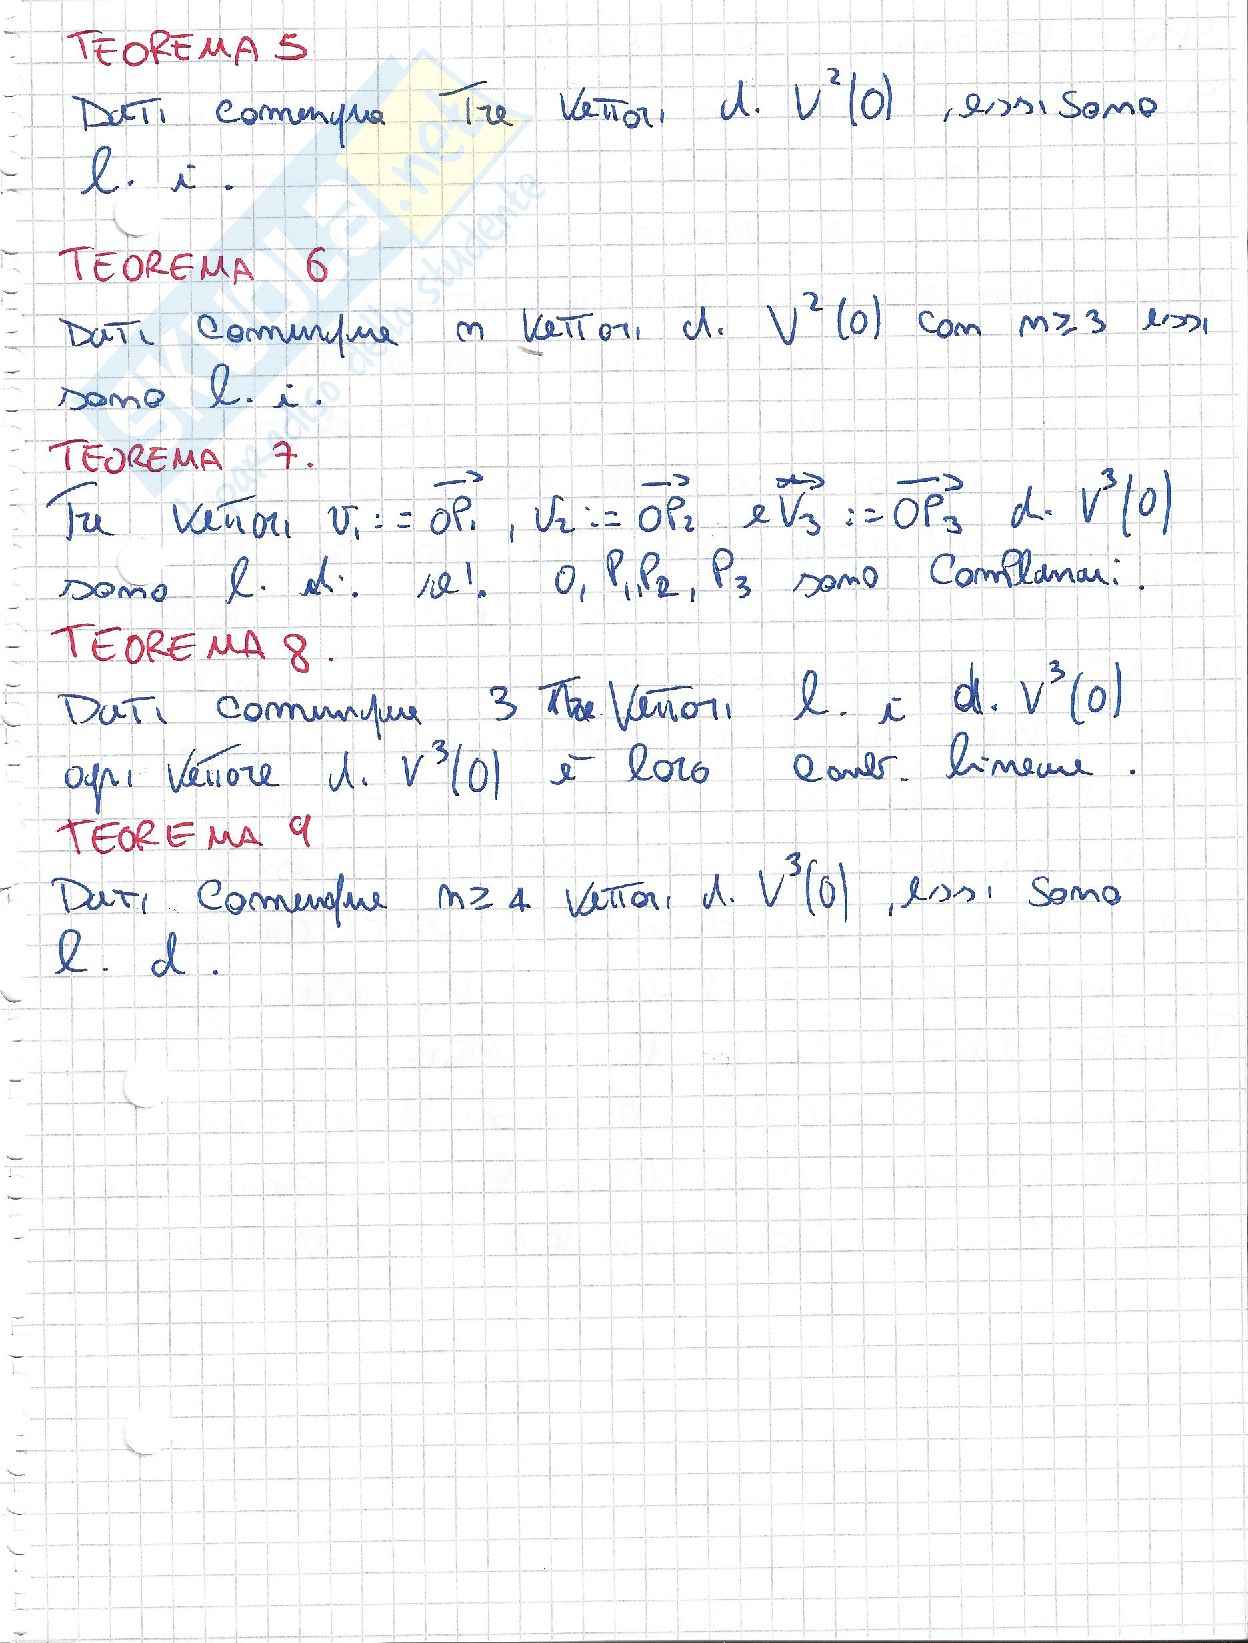 TEOREMA 5
Dati comunque Tre Vettori di V²(O), essi sono
l. i.
TEOREMA 6
Dati comunque n Vettori di V²(O) con n≥3 essi
sono l. i.
TEOREMA 7.
Tre Vettori v₁ := OP₁, v₂ := OP₂ e V₃ := OP₃ di V³(O)
sono l. d. se! O, P₁, P₂, P₃ sono Complanari.
TEOREMA 8.
Dati comunque 3 Vettori l. i di V³(O)
ogni Vettore di V³(O) è loro comb. lineare.
TEOREMA 9
Dati comunque n≥4 Vettori di V³(O), essi sono
l. d.
SKUOLA.net